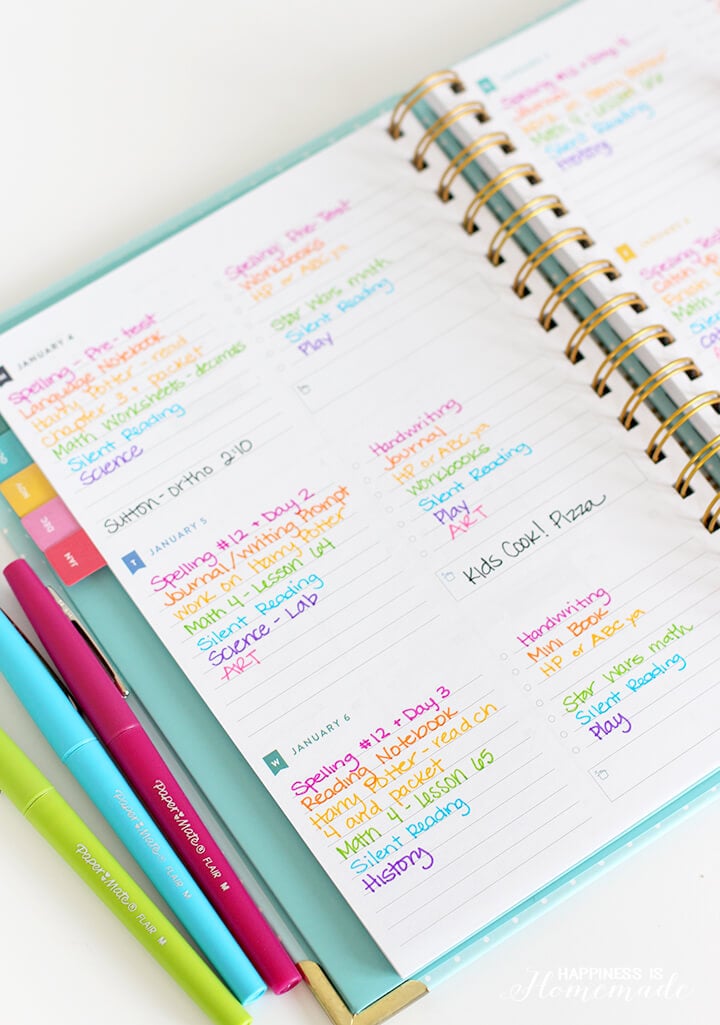 JANUARY 4
Spelling - Pre-test
Language Notebook
Harry Potter - read
Chapter 3 + packet
Math Worksheets - decimals
Silent Reading
Science
Sutton-ortho 2:10
Spelling Pre-Test
Workbooks
HP or ABC ya
Star Wars math
Silent Reading
Play
T
JANUARY 5
Spelling #12 + Day 2
Journal/Writing Prompt
work on Harry Potter
Math 4 - Lesson 64
Silent Reading
Science - Lab
ART
Handwriting
Journal
HP or ABC ya
Workbooks
Silent Reading
Play
ART
Kids Cook! Pizza
W
JANUARY 6
Spelling #12 + Day 3
Reading Notebook
Harry Potter - read ch
4 and packet
Math 4 - Lesson 65
Silent Reading
History
Handwriting
Mini Book
HP or ABC ya
Star Wars math
Silent Reading
Play
JANUARY
Journal
Silent Reading
History
Spelling Test
Catch Up
Finish
Math
NOV
DEC
JAN
Paper Mate® FLAIR M
Paper Mate® FLAIR M
Paper Mate® FLAIR M
HAPPINESS IS
Homemade